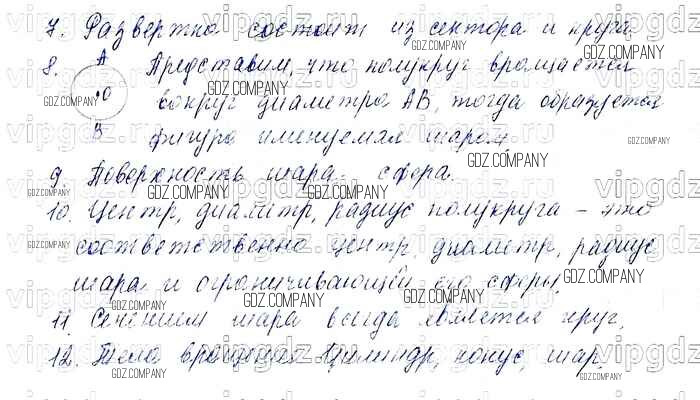 7. Развертка состоит из сектора и круга.
8. А Представим, что полукруг вращается
•О вокруг диаметра АВ, тогда образуется
В фигура именуемая шаром.
9. Поверхность шара - сфера.
10. Центр, диаметр, радиус полукруга – это
соответственно центр, диаметр, радиус
шара и ограничивающей его сферы.
11. Сечением шара всегда является круг.
12. Тела вращения: Цилиндр, конус, шар.
GDZ.COMPANY
vipgdz